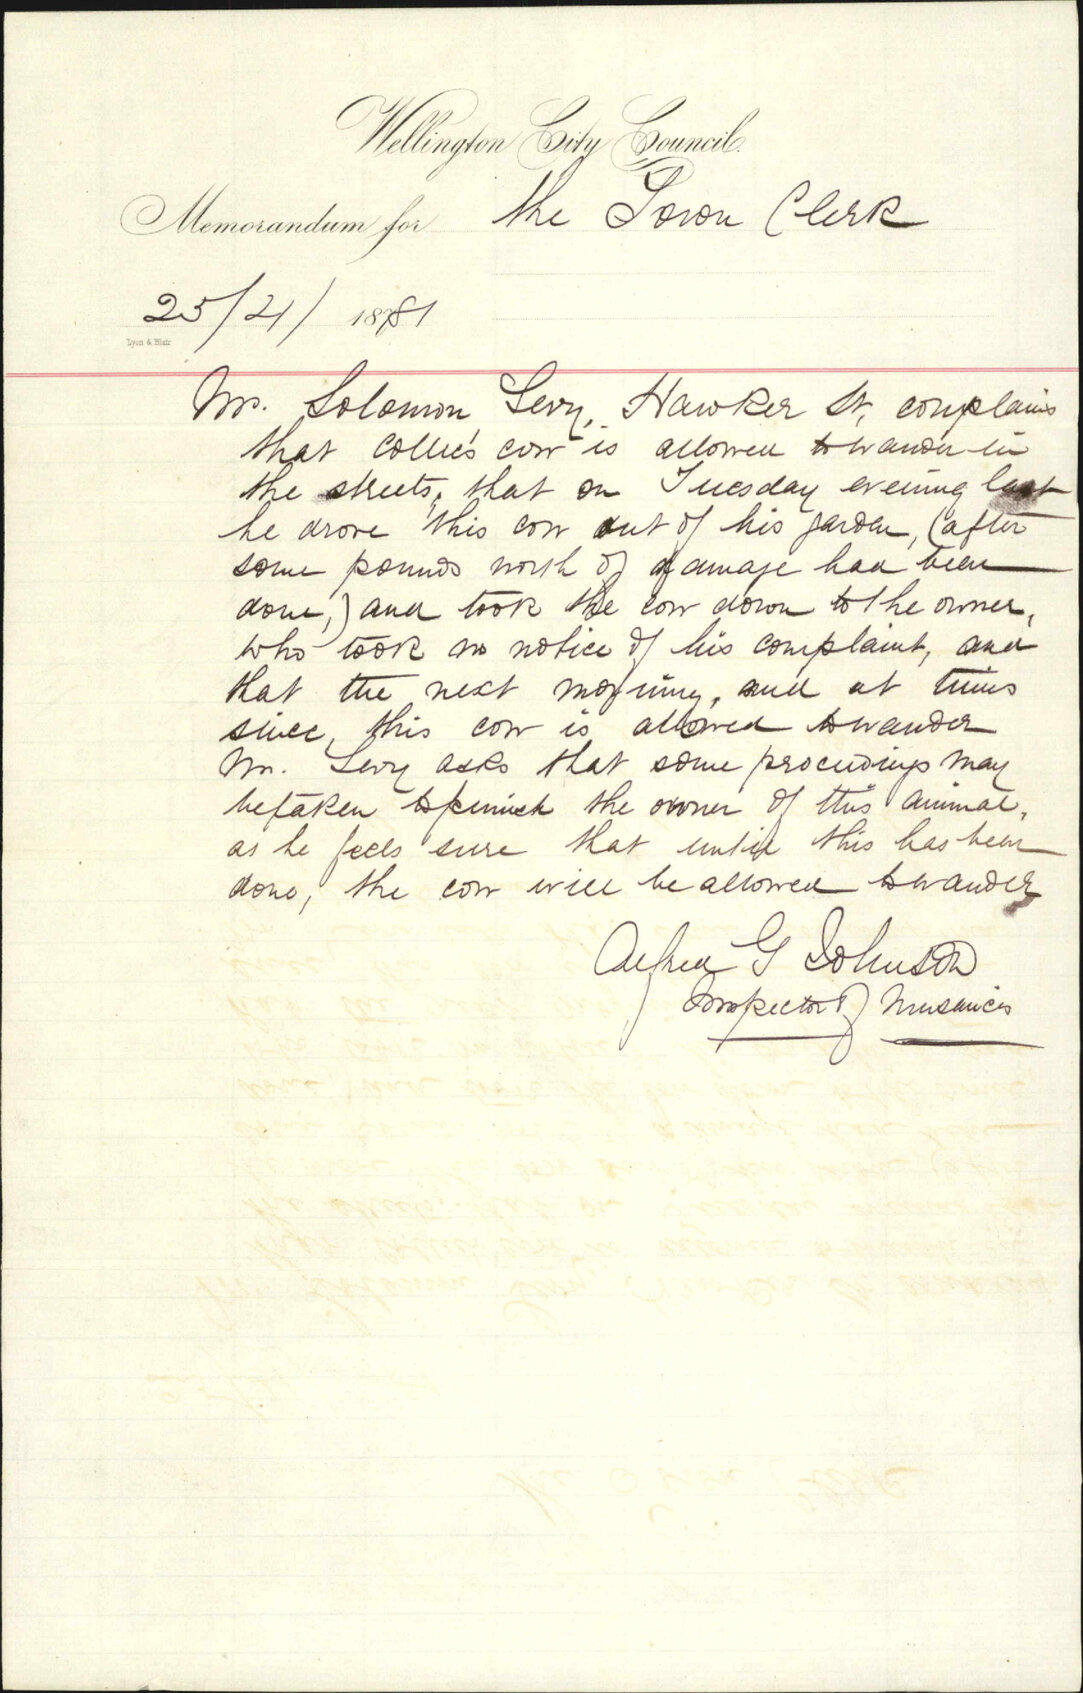 Wellington City Council.
Memorandum for the Town Clerk
25/4/1881
Lyon & Blair
Mr. Solomon Levy, Hawker St, complains
that Collie's cow is allowed to wander in
the streets, that on Tuesday evening last
he drove this cow out of his garden, (after
some pounds worth of damage had been
done,) and took the cow down to the owner,
who took no notice of his complaint, and
that the next morning, and at times
since, this cow is allowed to wander
Mr. Levy asks that some proceedings may
be taken to punish the owner of this animal,
as he feels sure that until this has been
done, the cow will be allowed to wander
Alfred G Johnson
Inspector of Nuisances